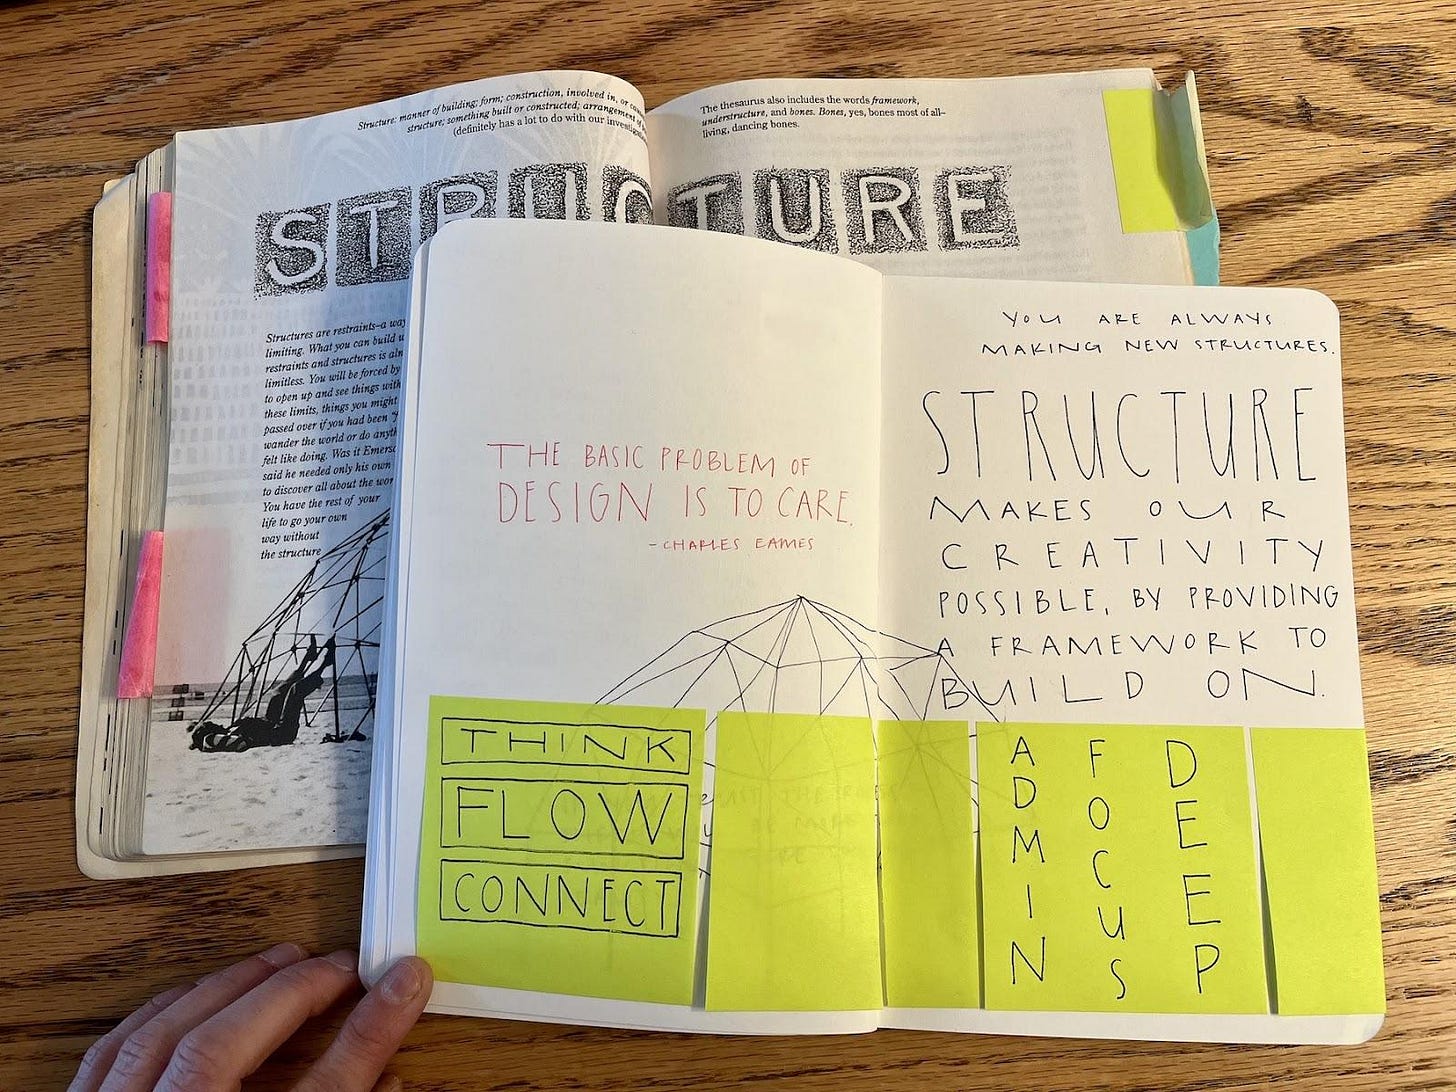 Structure: manner of building; form; construction, involved in, or
structure; something built or constructed; arrangement of
(definitely has a lot to do with our
The thesaurus also includes the words framework,
understructure, and bones. Bones, yes, bones most of all–
living, dancing bones.
STRUCTURE
Structures are restraints–a way
limiting. What you can build
restraints and structures is
limitless. You will be forced by
to open up and see things with
these limits, things you might
passed over if you had been
wander the world or do
felt like doing. Was it
said he needed only his own
to discover all about the
You have the rest of your
life to go your own
way without
the structure
THE BASIC PROBLEM OF
DESIGN IS TO CARE.
-CHARLES EAMES
THINK
FLOW
CONNECT
YOU ARE ALWAYS
MAKING NEW STRUCTURES.
STRUCTURE
MAKES OUR
CREATIVITY
POSSIBLE, BY PROVIDING
A FRAMEWORK TO
BUILD ON.
ADMIN
FOCUS
DEEP